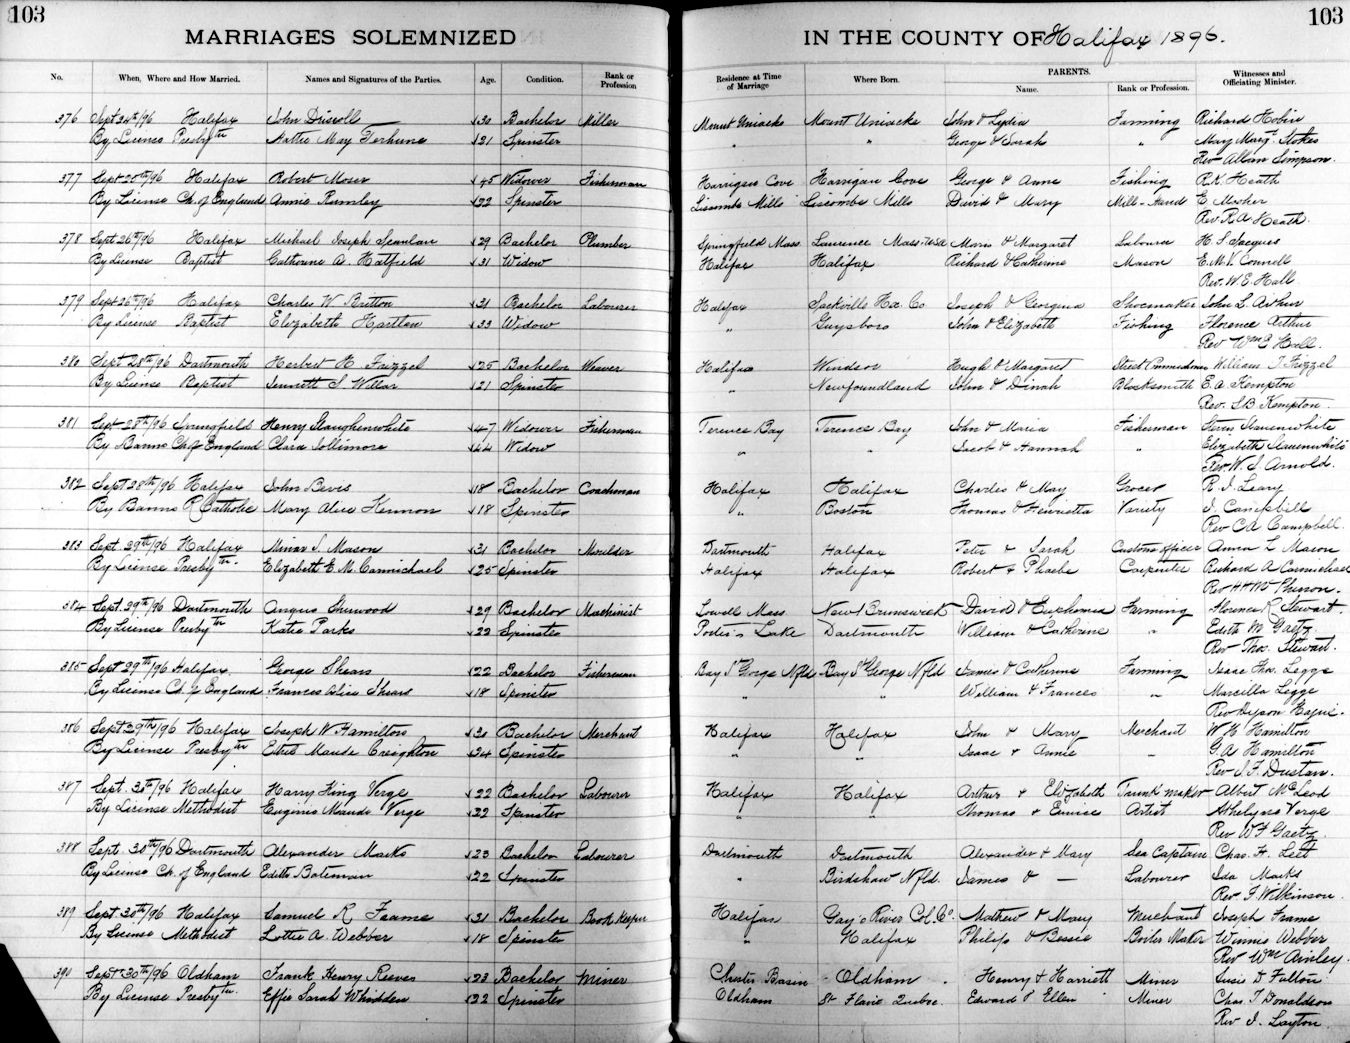 103
103
MARRIAGES SOLEMNIZED
IN THE COUNTY OF Halifax 1896.
No. When, Where and How Married. Names and Signatures of the Parties. Age. Condition. Rank or Profession Residence at Time of Marriage Where Born. PARENTS. Name. Rank or Profession. Witnesses and Officiating Minister.
376 Sept 24th/96 Halifax John Driscoll 30 Bachelor Miller Mount Uniacke Mount Uniacke John & Lydia Farming Richard
By License Presbytn Hattie May Terhune 21 Spinster " " George & Sarah " Mary Margt Stokes
Rev Allan Simpson.
377 Sept 25th/96 Halifax Robert Moser 45 Widower Fisherman Harrigan Cove Harrigan Cove George & Anne Fishing R.K. Heath
By License Ch. of England Annie Rumley 22 Spinster Liscombe Mills Liscombe Mills David & Mary Mill-Hand E Mosher
Rev R.A Heath
378 Sept 26th/96 Halifax Michael Joseph Scanlan 29 Bachelor Plumber Springfield Mass Laurence Mass. USA & Margaret Labourer H. S. Jacques
By License Baptist Catherine A Hatfield 31 Widow Halifax Halifax Richard & Catherine Mason E. McV. Connell
Rev. W. E. Hall
379 Sept 26th/96 Halifax Charles W Britton 31 Bachelor Labourer Halifax Sackville Hx Co Joseph & Georgina Shoemaker John L. Arthur
By License Baptist Elizabeth Hartlen 33 Widow " Guysboro John & Elizabeth Fishing Florence Arthur
Rev Wm E Hall.
380 Sept 28th/96 Dartmouth Herbert H Frizzel 25 Bachelor Weaver Halifax Windsor Hugh & Margaret Street William J Frizzel
By License Baptist S. 21 Spinster " Newfoundland John & Dinah Blacksmith E. A. Kempton
Rev. S.B. Kempton
381 Sept 28th/96 Springfield Henry Slaughenwhite 47 Widower Fisherman Terence Bay Terence Bay John & Maria Fisherman Slauenwhite
By Banns Ch of England Clara Jollimore 44 Widow " " Jacob & Hannah " Elizabeth Slauenwhite
Rev W. J. Arnold.
382 Sept 28th/96 Halifax John Bevis 18 Bachelor Coachman Halifax Halifax Charles & May Grocer R. J. Leary
By Banns R Catholic Mary Alice Kennon 18 Spinster " Boston Thomas & Henrietta Variety J. Campbell
Rev CA Campbell
383 Sept. 29th/96 Halifax Minar S. Mason 31 Bachelor Moulder Dartmouth Halifax Peter & Sarah Customs Officer Anna L Mason
By License Presbytn. Elizabeth E. McCarmichael 25 Spinster Halifax Halifax Robert & Phoebe Carpenter Richard A Carmichael
Rev H H McPherson.
384 Sept. 29th/96 Dartmouth Angus Sherwood 29 Bachelor Machinist Lowell Mass New Brunswick David & Euphemia Farming Florence R Stewart.
By License Presbytn Katie Parks 22 Spinster Porter's Lake Dartmouth William & Catherine " Edith M Gaetz
Rev Thos. Stewart.
385 Sept 29th/96 Halifax. George Shears 22 Bachelor Fisherman Bay St George Nfld Bay St George Nfld James & Catherine Farming Isaac Thos. Legge
By License Ch. of England Frances Alice Shears 18 Spinster " " William & Frances " Marcella Legge
Rev Dyson Hague.
386 Sept 29th/96 Halifax Joseph W Hamilton 30 Bachelor Merchant Halifax Halifax John & Mary Merchant W H Hamilton
By License Presbytn Ethel Maude Creighton 24 Spinster " " Isaac & Annie " G A Hamilton
Rev J. F. Dustan.
387 Sept. 30th/96 Halifax Harry King Verge 22 Bachelor Labourer Halifax Halifax Arthur & Elizabeth Trunk Maker Albert McLeod
By License Methodist Eugenie Maude Verge 22 Spinster " " Thomas & Eunice Artist Verge
Rev W F Gaetz
388 Sept. 30th/96 Dartmouth Alexander Marks 23 Bachelor Labourer Dartmouth Dartmouth Alexander & Mary Sea Captain Chas. H. Leet
By License Ch. of England Edith Bateman 22 Spinster " Birdshaw Nfld. James & — Labourer Ida Marks
Rev F. Wilkinson.
389 Sept 30th/96 Halifax Samuel R Frame 31 Bachelor Book Keeper Halifax Gay's River Col. Co. Mathew & Mary Merchant Joseph Frame
By License Methodist Lottie A. Webber 18 Spinster " Halifax Philip & Bessie Boiler Maker Winnie Webber
Rev Wm Ainley.
390 Sept 30th/96 Oldham Frank Henry Reeves 23 Bachelor Miner Chester Basin Oldham Henry & Harriett Miner Susie D Fulton
By License Presbytn. Effie Sarah Whidden 22 Spinster Oldham St Flavie Quebec. Edward & Ellen Miner Chas. T. Donaldson
Rev J. Layton.